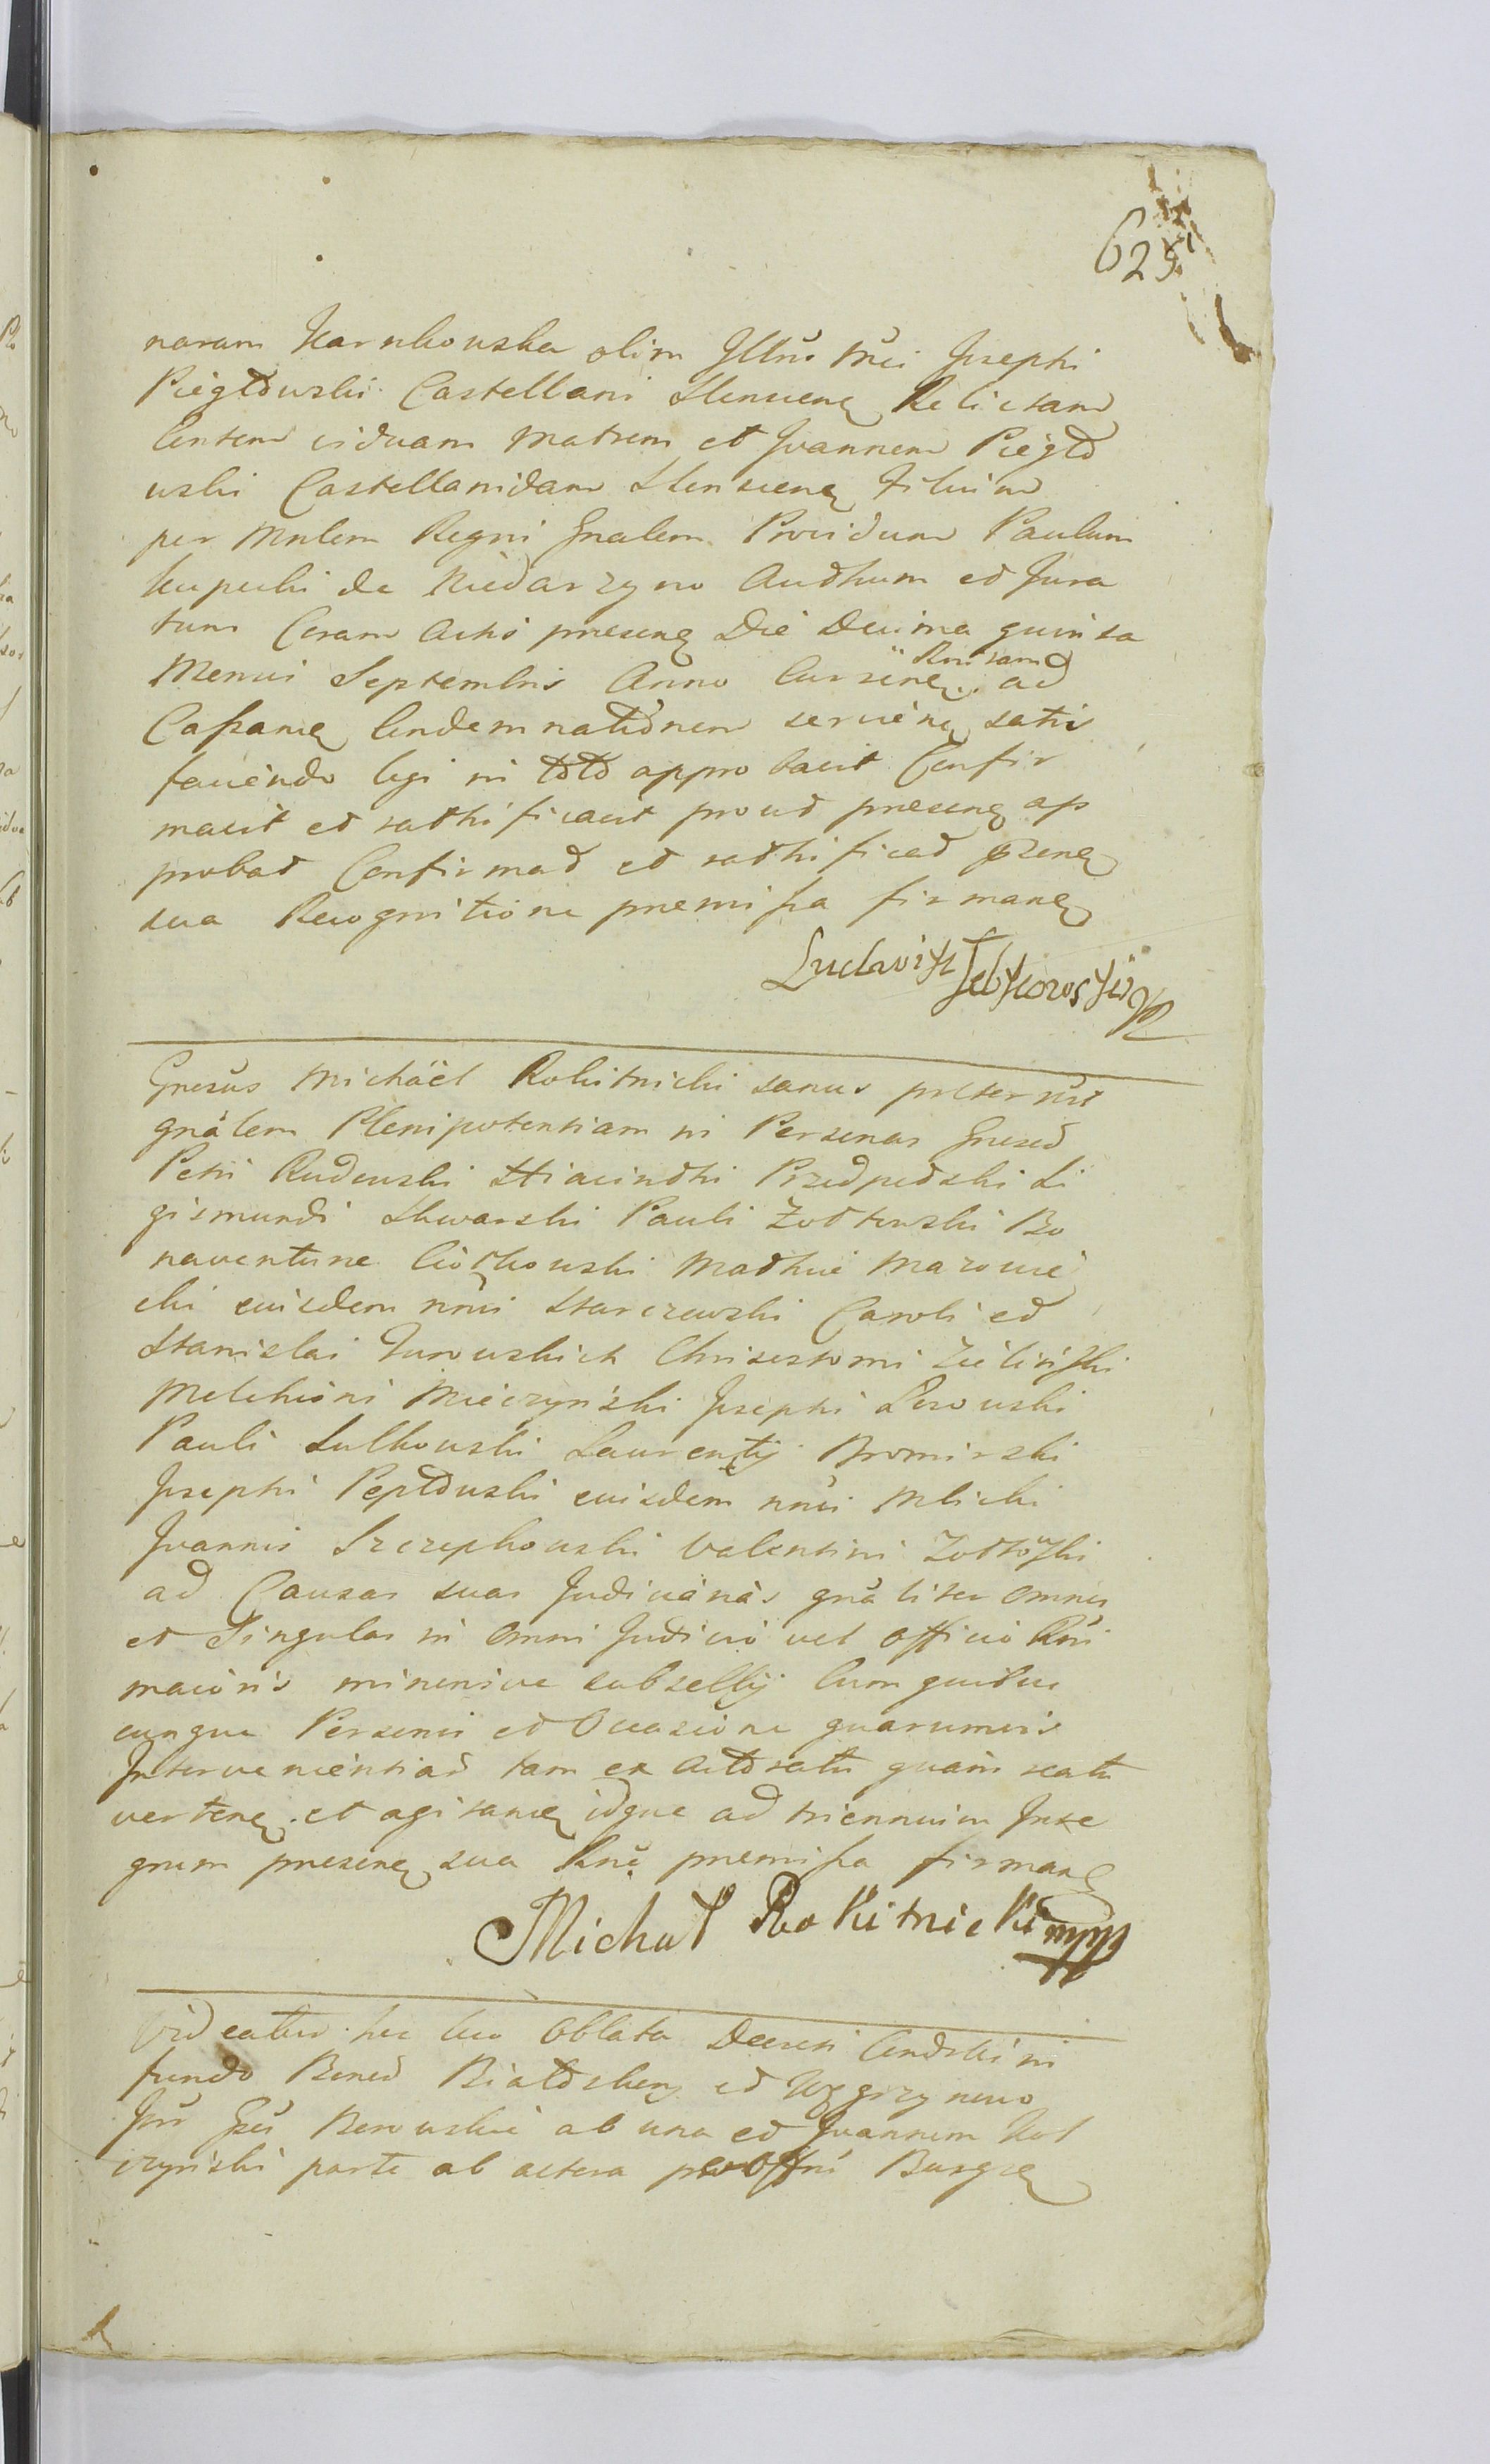 625
naram Karnkowska olim Illus Mci Josephi
Pięgłowski Castellani Slonscens Relictam
Consem viduam Matrem et Joannem Pięgło
wski Castellanidam Slonscens Filium
per Mnlem Regni Gnalem Providum Paulum
de Niedarzyno Authum et Jura
tum Coram Actis presens Die Decima quinta
Mensis Septembris Anno Currens Rnitam ad
Capsans Condemnationem serviens satis
faciendo legi in toto approbavit Confir
mavit et rathificavit prout presens ap
probat Confirmat et rathificat
sua Recognitione premissa firmans
Ludwik
Gnesus Michael Rokitnicki sanus
gnalem Plenipotentiam in Personas Gnesod
Petri Rudowski Hiacinthi Przedpełski Si
gismundi Skwarski Pauli Żołtowski Bo
naventure Ciołkowski Mathie Mazowie
cki eiusdem nnis Starczewski Caroli et
Stanislai Turowskich Chrisostomi Zieliński
Melchioris Mieczyński Josephi Lisowski
Pauli Sulkowski Laurentij Bromirski
Josephi Pepłowski eiusdem nnis Mlicki
Joannis Szczepkowski Valentini Żołtowski
ad Causas suas Judiciarias gnaliter omnes
et Singulas in omni Judicio vel officio Rni
maioris minorisve subsellij Cum quibus
cunque Personis et Occasione quarumvis
Intervenientiar tam ex actoratu quam reatu
vertens et agitans idque ad triennium Inte
grum presens sua Rne premissa firmans
Michał Rokitnicki mpp
Videatur hic loco Oblata Decreti Condicti in
fundo Bonod et Węgrzynowo
Borowskie ab una et Joannem Kol
czyński parte ab altera Offni Burgr